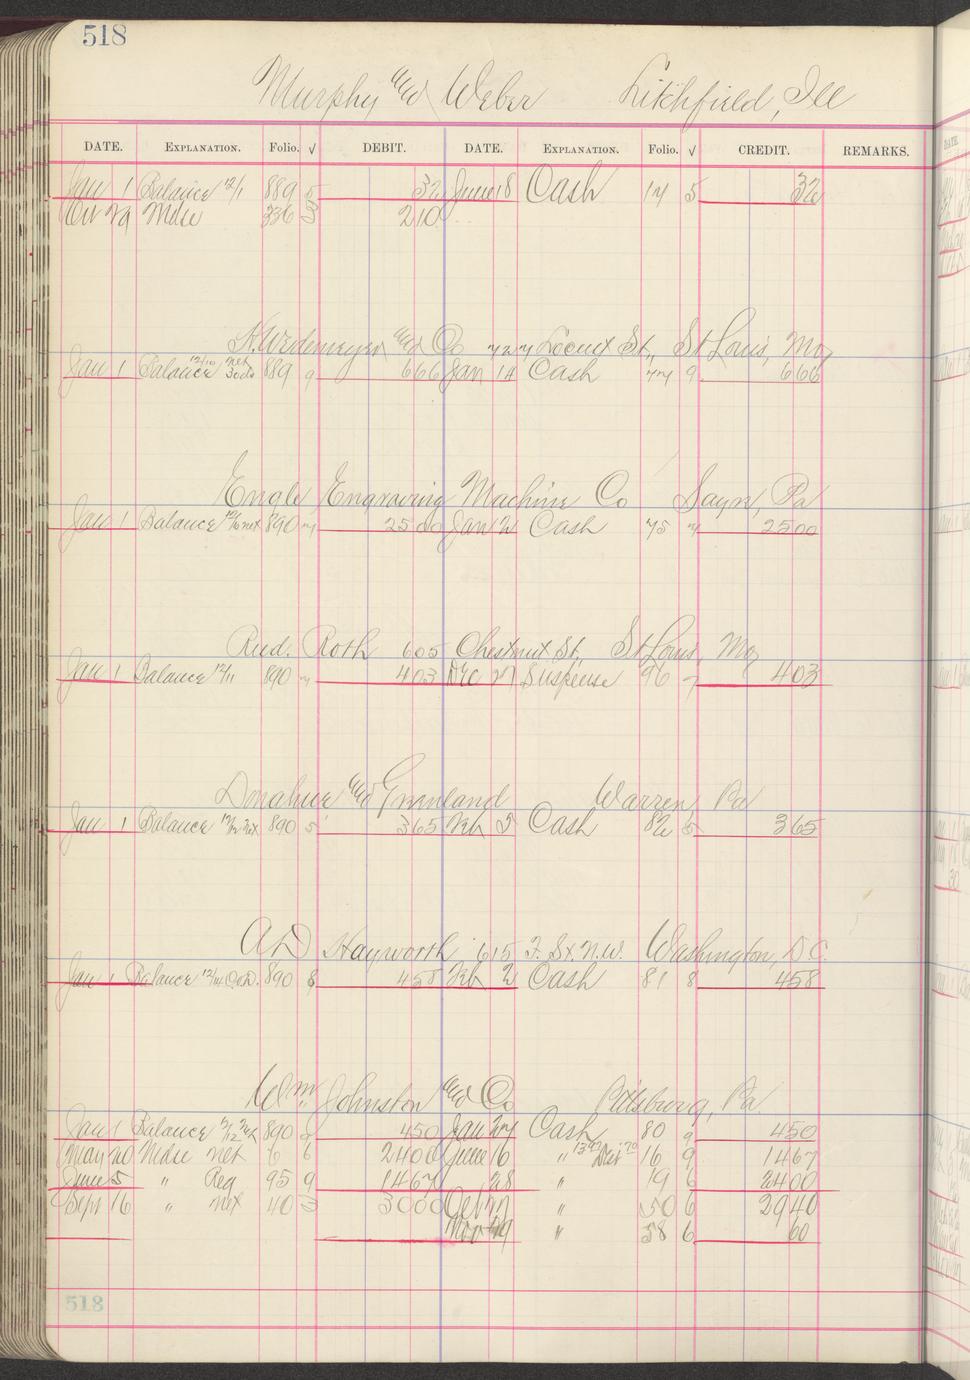 518
Murphy and Weber Litchfield, Ill
DATE. EXPLANATION. Folio. √ DEBIT. DATE. EXPLANATION. Folio. √ CREDIT. REMARKS.
Jan 1 Balance 12/1 889 5 32 June 18 Cash 14 5 32
29 Mdse 336 3 210
Wedemeyer and Co Locust St., St Louis, Mo
Jan 1 Balance 12/10 net 30ds 889 9 666 Jan 14 Cash 9 666
Engle Engraving Machine Co Sayre, Pa
Jan 1 Balance net 890 2500 Jan 2 Cash 75 2500
Rud. Roth 605 Chestnut St., St Louis, Mo
Jan 1 Balance 12/11 890 403 Dec Suspense 96 7 403
Donahue and Grenland Warren Pa
Jan 1 Balance 12/12 net 890 5 365 Feb 5 Cash 82 5 365
A D Hayworth 615 F. St. N.W. Washington, D.C.
Jan 1 Balance 12/14 C.O.D. 890 8 458 Feb 2 Cash 81 8 458
Wm Johnston and Co Pittsburg, Pa.
Jan 1 Balance 12/12 net 890 9 450 Jan Cash 80 9 450
May 20 Mdse net 6 6 2400 June 16 " 16 9 1467
June 5 " Reg 95 9 1467 28 " 19 6 2400
Sept 16 " net 40 3 3000 Oct " 50 6 2940
Nov " 58 6 60
518